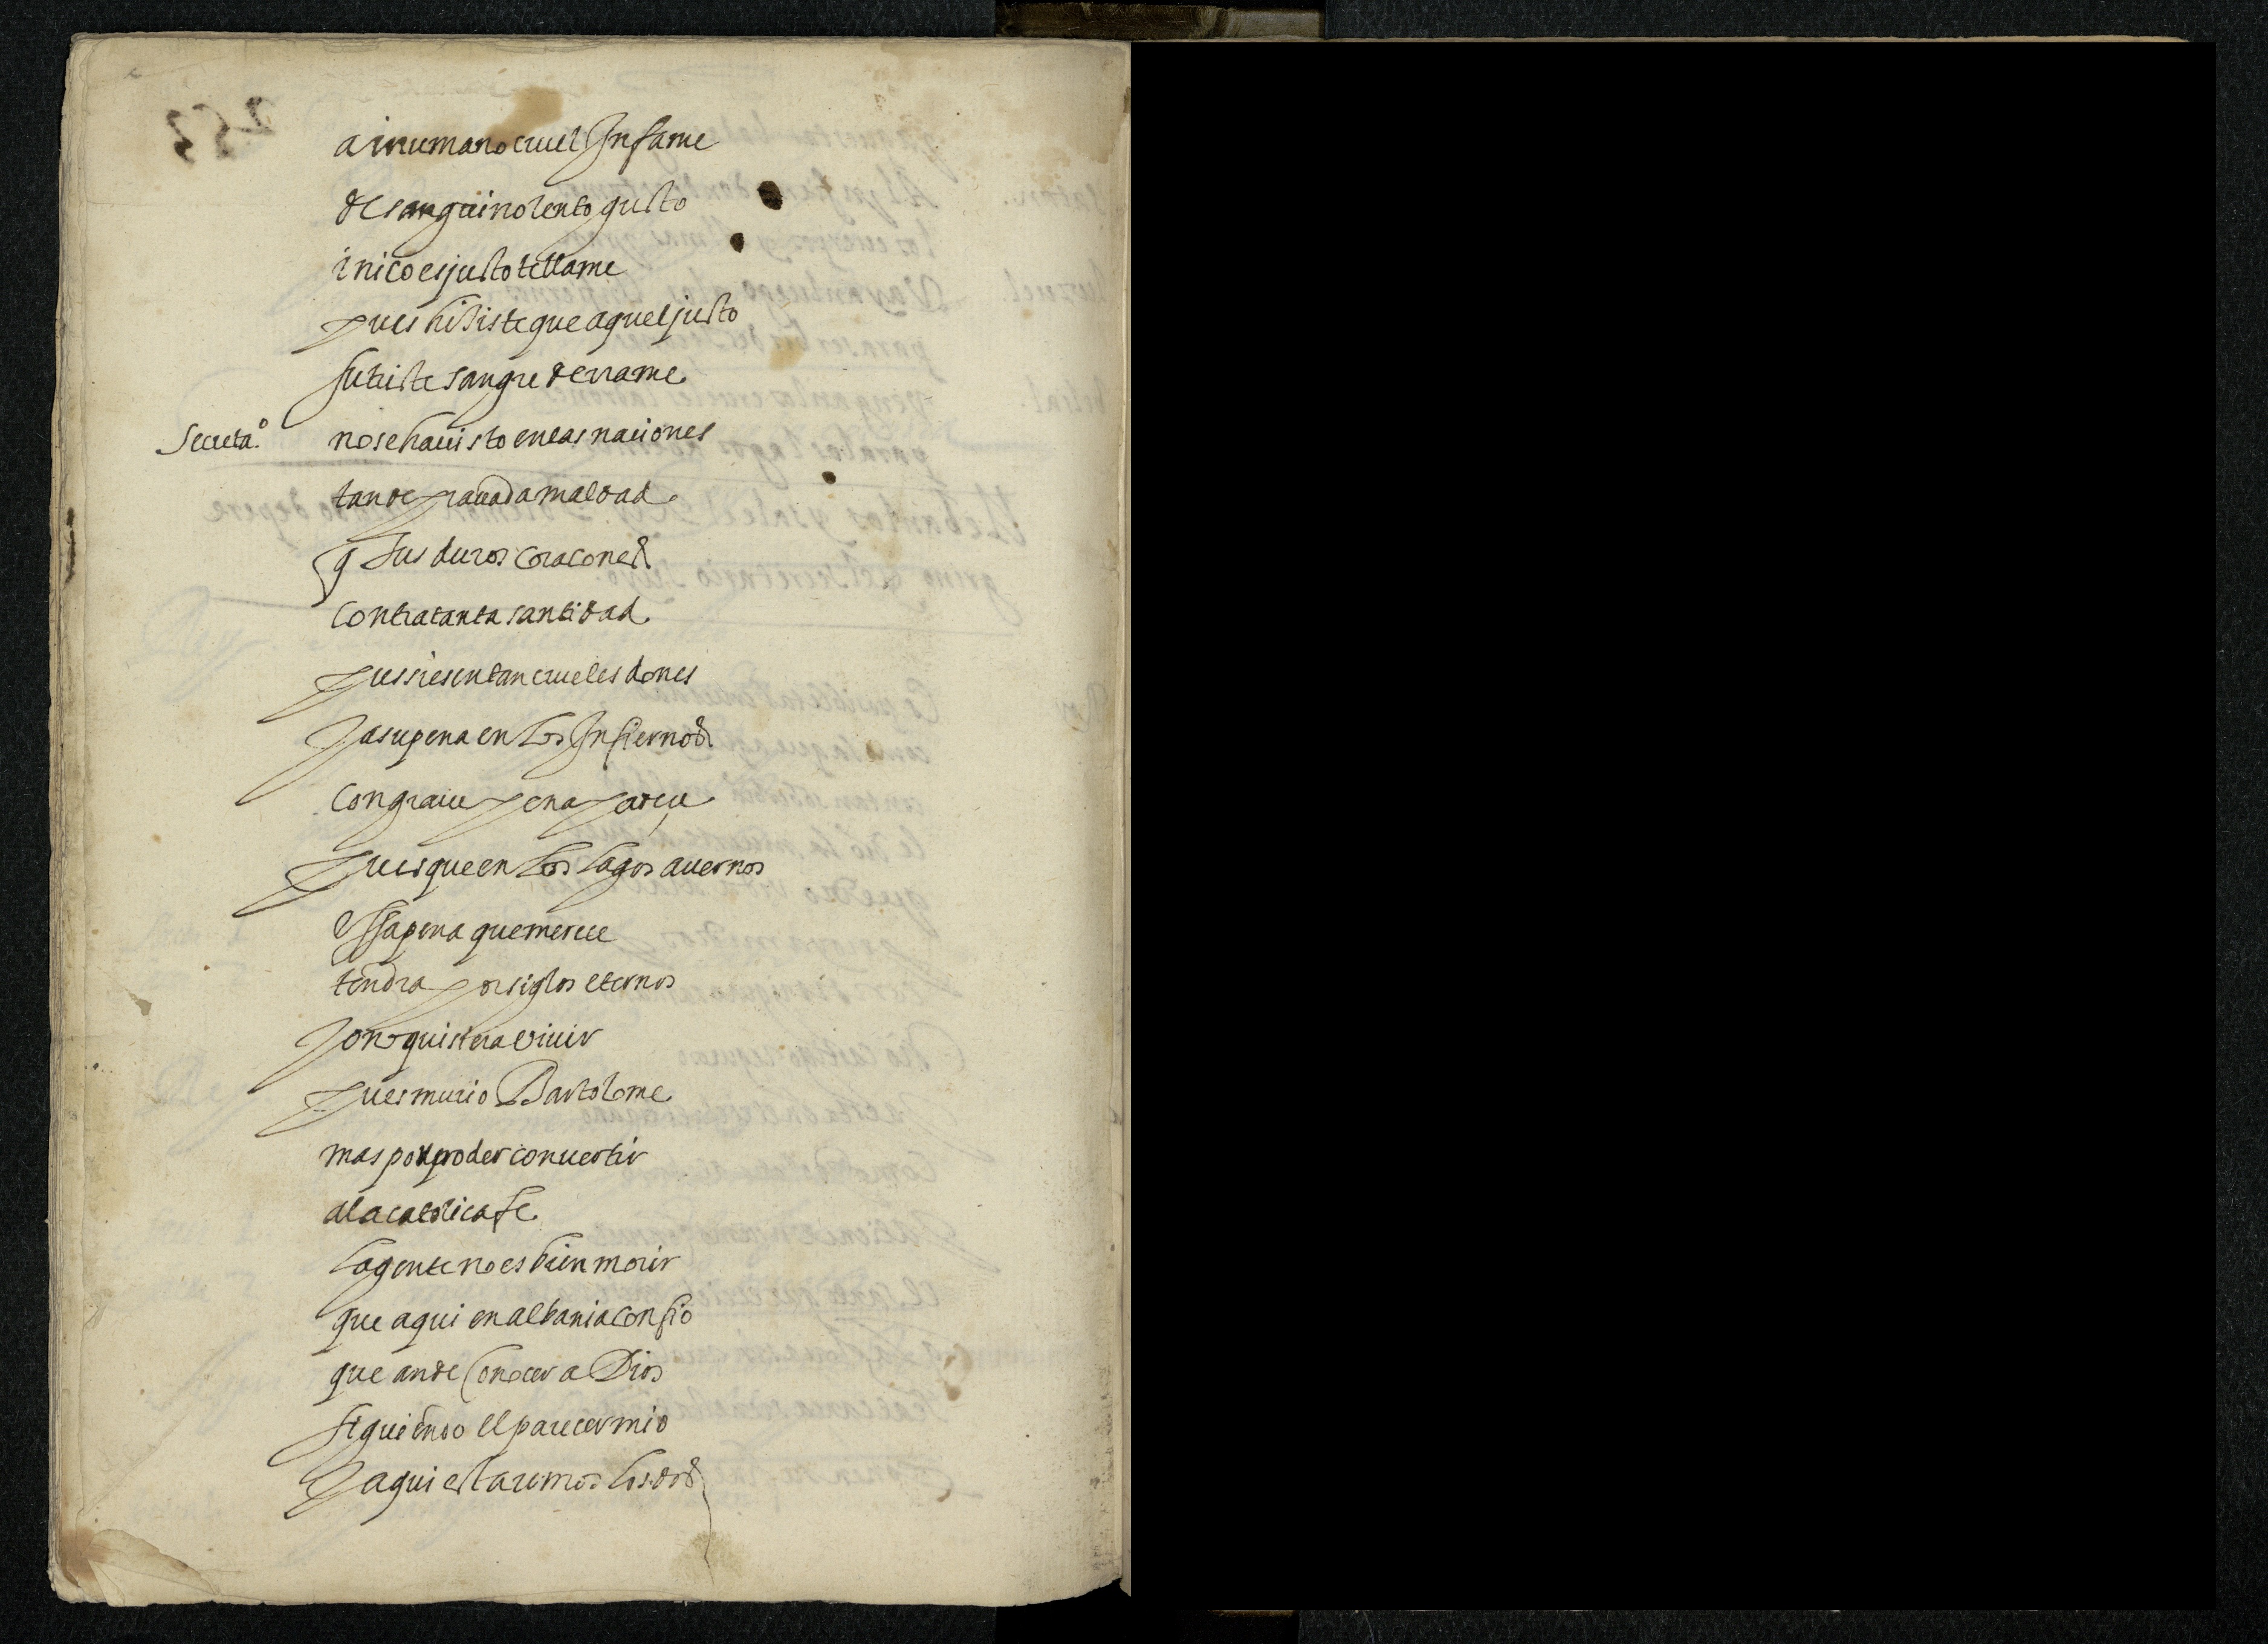 a inumano cruel Infame
de sanguinolento gusto
inico es justo te llame
pues hisiste que aquel justo
su triste sangre derrame
Secreta.º no se ha uisto en las naciones
tan deprauada maldad
q sus duros coraçones
contra tanta santidad
pussiesen tan crueles dones
ya su pena en los Infiernos
con graue pena padeçe
pues que en los lagos auernos
essa pena que merece
tendra por siglos eternos
yo no quisiera viuir
pues murio Bartolome
mas por poder conuertir
a la catolica fe
la gente no es bien morir
que aqui en albania confio
que an de conocer a Dios
siguiendo el parecer mio
y aqui estaremos los dos